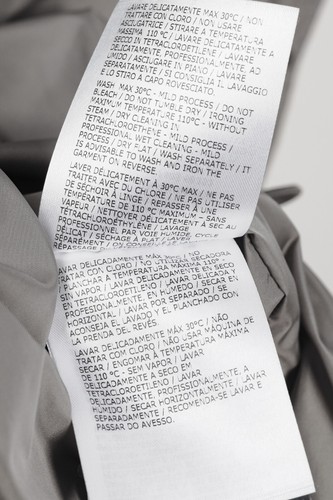 LAVARE DELICATAMENTE MAX 30°C / NON
TRATTARE CON CLORO / NON USARE
ASCIUGATRICE / STIRARE A TEMPERATURA
MASSIMA 110 °C / LAVARE DELICATAMENTE A
SECCO IN TETRACLOROETILENE / LAVARE
DELICATAMENTE, PROFESSIONALMENTE, AD
UMIDO / ASCIUGARE IN PIANO / LAVARE
SEPARATAMENTE / SI CONSIGLIA IL LAVAGGIO
E LO STIRO A CAPO ROVESCIATO.
WASH MAX 30°C - MILD PROCESS / DO NOT
BLEACH / DO NOT TUMBLE DRY / IRONING
MAXIMUM TEMPERATURE 110°C - WITHOUT
STEAM / DRY CLEANING IN
TETRACHLOROETHENE - MILD PROCESS /
PROFESSIONAL WET CLEANING - MILD
PROCESS / DRY FLAT / WASH SEPARATELY / IT
IS ADVISABLE TO WASH AND IRON THE
GARMENT ON REVERSE.
LAVER DÉLICATEMENT À 30°C MAX / NE PAS
TRAITER AVEC DU CHLORE / NE PAS UTILISER
DE SÉCHOIR À LINGE / REPASSER À UNE
TEMPÉRATURE DE 110 °C MAXIMUM – SANS
VAPEUR / NETTOYER DÉLICATEMENT À SEC AU
TÉTRACHLOROÉTHYLÈNE / LAVAGE
PROFESSIONNEL PAR VOIE HUMIDE, CYCLE
DÉLICAT / SÉCHAGE À PLAT / LAVER
SÉPARÉMENT / ON CONSEILLE
LAVAR DELICADAMENTE MAX
TRATAR CON CLORO / NO
/ PLANCHAR A TEMPERATURA MÁXIMA 110°
SIN VAPOR / LAVAR DELICADAMENTE EN SECO
EN TETRACLOROETILENO / LAVAR DELICADA Y
PROFESIONALMENTE, EN HÚMEDO / SECAR EN
HORIZONTAL / LAVAR POR SEPARADO / SE
ACONSEJA EL LAVADO Y EL PLANCHADO CON
LA PRENDA DEL REVÉS.
LAVAR DELICADAMENTE MÁX 30°C / NÃO
TRATAR COM CLORO / NÃO USAR MÁQUINA DE
SECAR / ENGOMAR À TEMPERATURA MÁXIMA
DE 110 °C - SEM VAPOR / LAVAR
DELICADAMENTE A SECO EM
TETRACLOROETILENO / LAVAR
DELICADAMENTE, PROFISSIONALMENTE, A
HÚMIDO / SECAR HORIZONTALMENTE / LAVAR
SEPARADAMENTE / RECOMENDA-SE LAVAR E
PASSAR DO AVESSO.